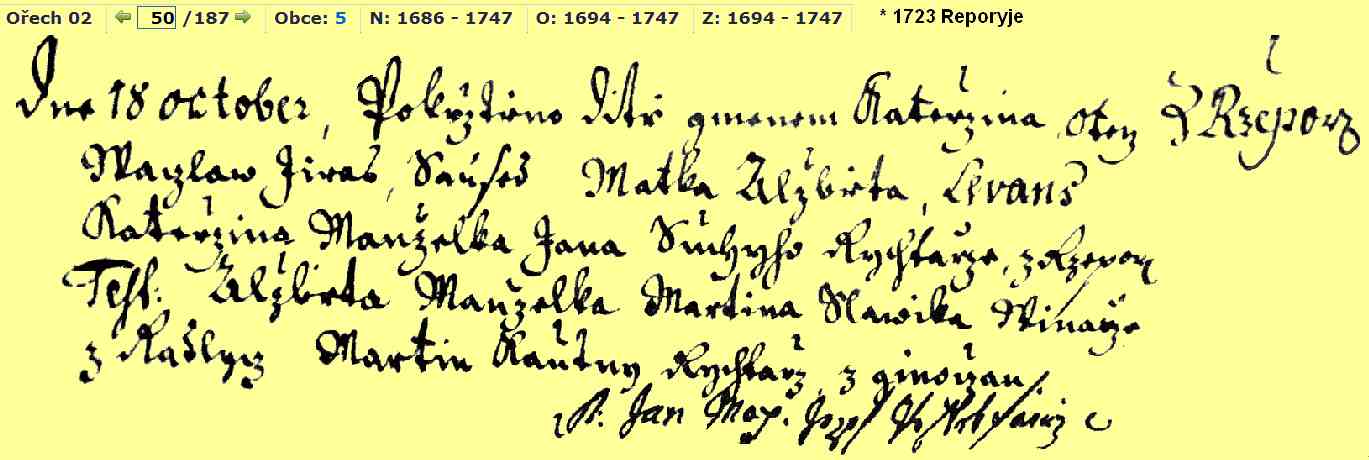 Ořech 02 50 /187 Obce: 5 N: 1686 - 1747 O: 1694 - 1747 Z: 1694 - 1747 * 1723 Reporyje
Dne 18 october, Pokrztěno Ditě gmenem Katerzina otecz Z Rzeporz
Waczlaw Jiras, Saused Matka Alzbieta, Levans
Katerzina Manzelka Jana Suchyho Rychtarze, z Rzeporz
Test: Alzbieta Manzelka Martina Slawika Winarze
z Ratlycz Martin Kautny Rychtarz z ginoczan
P. Jan